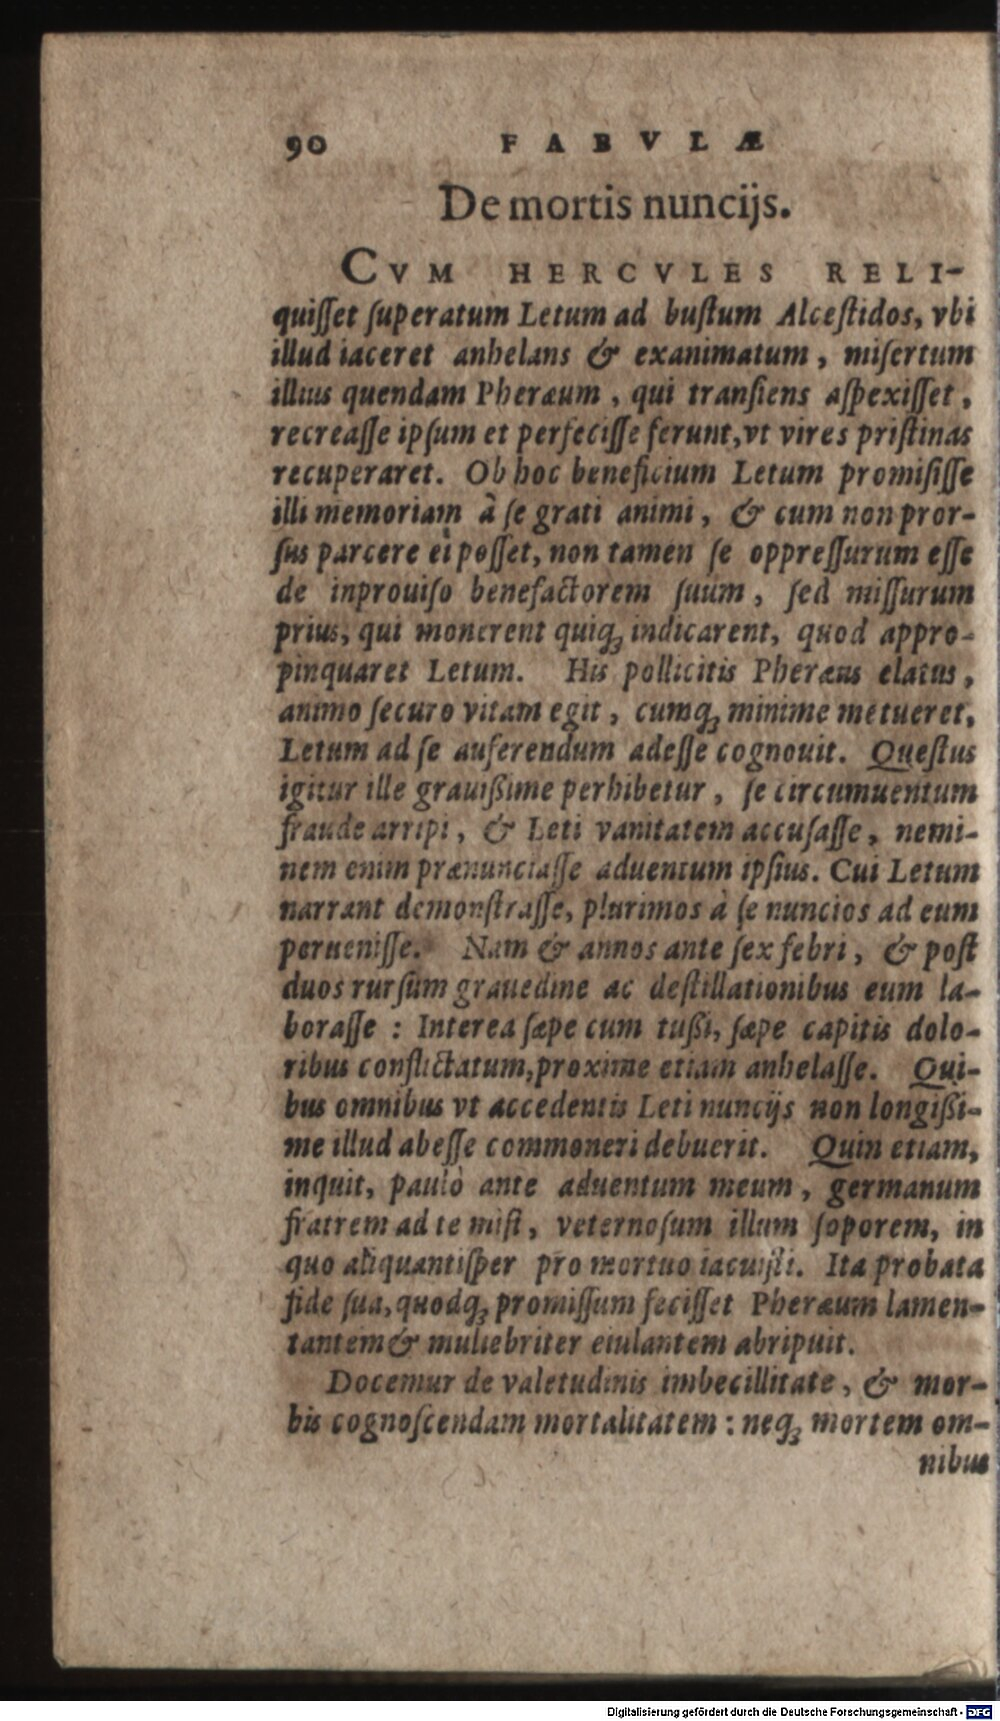 90 FABVLÆ
De mortis nuncijs.
CVM HERCVLES RELI-
quiſſet ſuperatum Letum ad buſtum Alceſtidos, vbi
illud iaceret anhelans & exanimatum, miſertum
illius quendam Pheræum, qui tranſiens aſpexiſſet,
recreaſſe ipſum et perfeciſſe ferunt, vt vires priſtinas
recuperaret. Ob hoc beneficium Letum promiſiſſe
illi memoriam à ſe grati animi, & cum non pror-
ſus parcere ei poſſet, non tamen ſe oppreſſurum eſſe
de inprouiſo benefactorem ſuum, ſed miſſurum
prius, qui monerent quiq́ꝫ indicarent, quod appro-
pinquaret Letum. His pollicitis Pheræus elatus,
animo ſecuro vitam egit, cumqꝫ minime metueret,
Letum ad ſe auferendum adeſſe cognouit. Queſtus
igitur ille grauißime perhibetur, ſe circumuentum
fraude arripi, & Leti vanitatem accuſaſſe, nemi-
nem enim prænunciaſſe aduentum ipſius. Cui Letum
narrant demonſtraſſe, plurimos à ſe nuncios ad eum
perueniſſe. Nam & annos ante ſex febri, & poſt
duos rurſùm grauedine ac deſtillationibus eum la-
boraſſe : Interea ſæpe cum tußi, ſæpe capitis dolo-
ribus conflictatum, proxime etiam anhelaſſe. Qui-
bus omnibus vt accedentis Leti nuncijs non longißi-
me illud abeſſe commoneri debuerit. Quin etiam,
inquit, paulò ante aduentum meum, germanum
fratrem ad te miſi, veternoſum illum ſoporem, in
quo aliquantiſper pro mortuo iacuiſti. Ita probata
fide ſua, quodqꝫ promiſſum feciſſet Pheræum lamen-
tantem & muliebriter eiulantem abripuit.
Docemur de valetudinis imbecillitate, & mor-
bis cognoſcendam mortalitatem : neqꝫ mortem om-
nibus
Digitalisierung gefördert durch die Deutsche Forschungsgemeinschaft - DFG